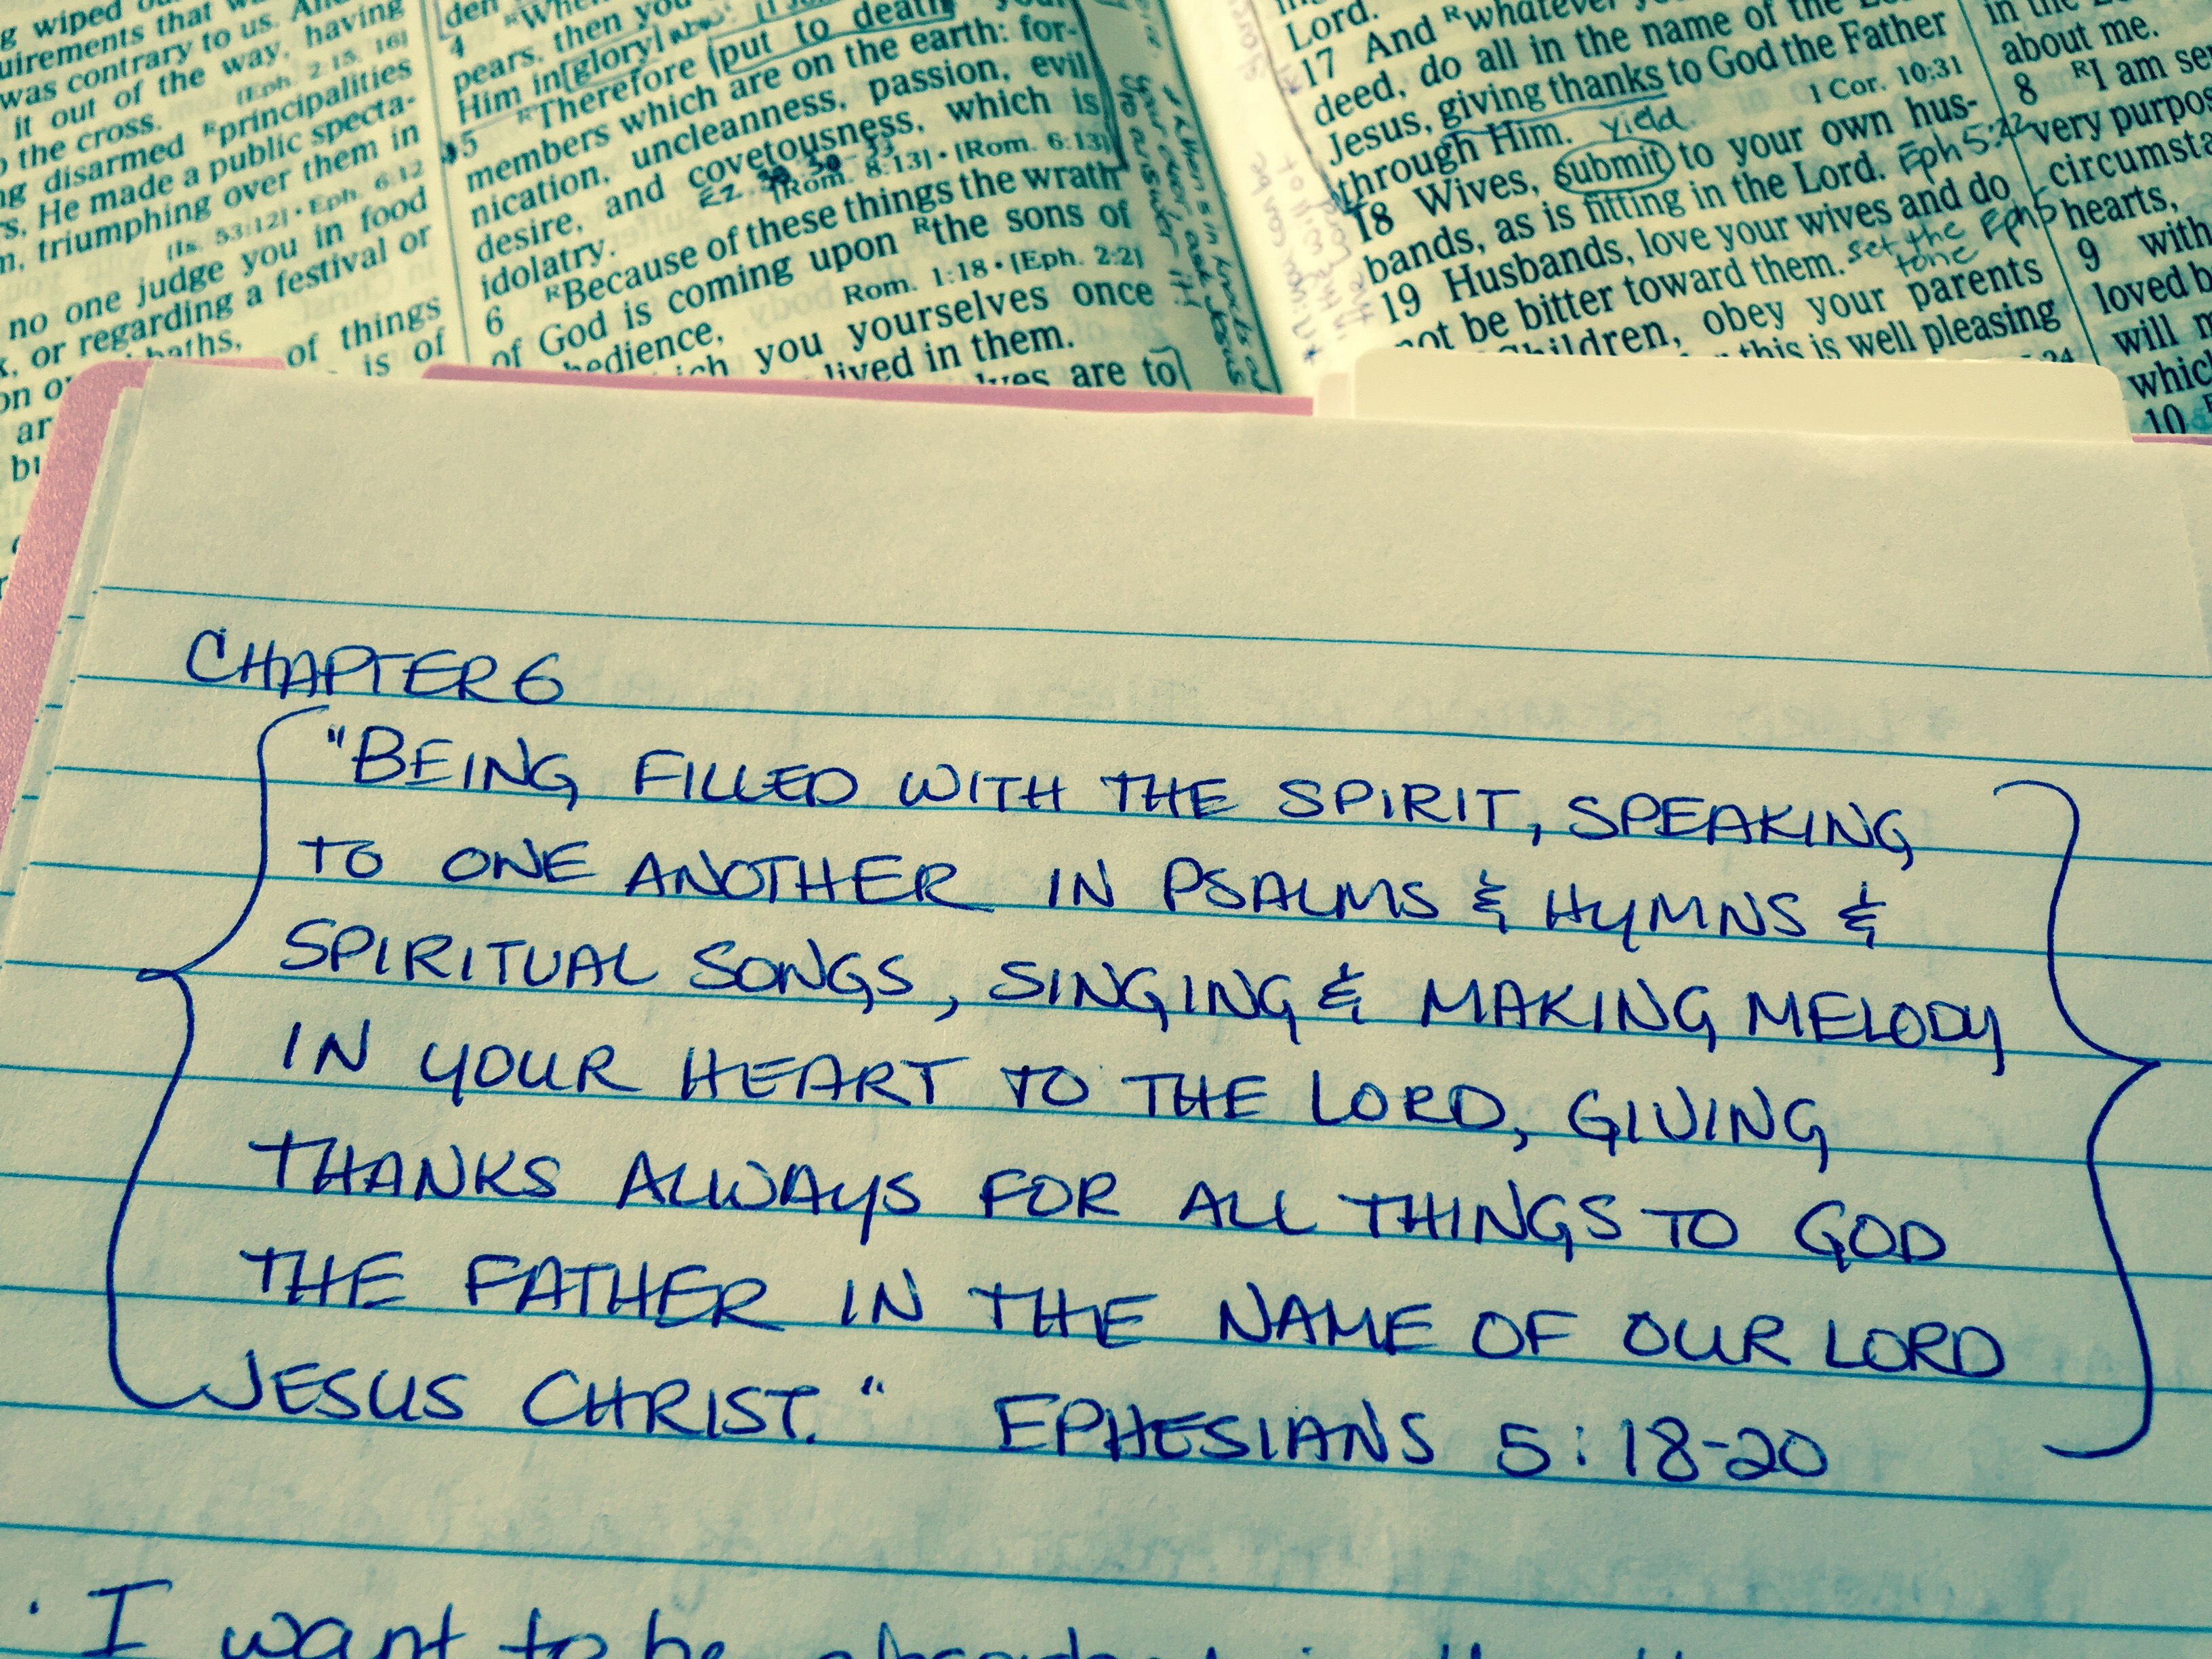 g wiped
uirements that
was contrary to us. And
it out of the way, having
the cross. [Eph. 2:15, 16]
ng disarmed ᴿprincipalities
rs, He made a public specta-
n, triumphing over them in
[Is. 53:12] • Eph. 6:12
no one judge you in food
, or regarding a festival or
baths,
of things
is of
4 ᴿWhen
pears, then you
Him in glory.
5 ᴿTherefore put to death your
members which are on the earth: for-
nication, uncleanness, passion, evil
desire, and covetousness, which is
idolatry. [Rom. 8:13] • [Rom. 6:13]
6 ᴿBecause of these things the wrath
of God is coming upon ᴿthe sons of
bedience, Rom. 1:18 • [Eph. 2:2]
ich you yourselves once
lived in them.
lves are to
Lord.
17 And ᴿwhatever
deed, do all in the name of the
Jesus, giving thanks to God the Father
through Him. yield 1 Cor. 10:31
18 Wives, submit to your own hus-
bands, as is fitting in the Lord. Eph 5:22
19 Husbands, love your wives and do
not be bitter toward them. set the tone Eph 5
Children, obey your parents
this is well pleasing
in the
about me.
8 ᴿI am se
very purpos
circumsta
hearts,
9 with
loved b
will m
which
10
CHAPTER 6
"BEING FILLED WITH THE SPIRIT, SPEAKING
TO ONE ANOTHER IN PSALMS & HYMNS &
SPIRITUAL SONGS, SINGING & MAKING MELODY
IN YOUR HEART TO THE LORD, GIVING
THANKS ALWAYS FOR ALL THINGS TO GOD
THE FATHER IN THE NAME OF OUR LORD
JESUS CHRIST." EPHESIANS 5:18-20
· I want to be